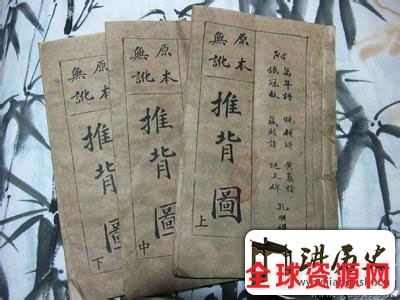 附
萬年謌 燒餅謌 黃蘗詩 孔明碑
鐵冠數 藏頭詩
原本
無訛
推背圖
上
原本
無訛
推背圖
中
原本
無訛
推背圖
下
讲历史
全球资源网